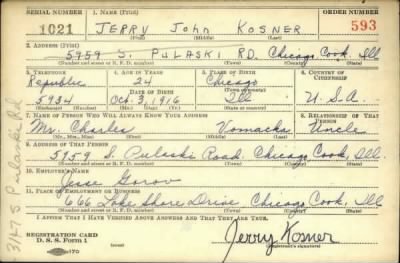 SERIAL NUMBER 1. NAME (Print) ORDER NUMBER
1021 JERRY John KOSNER 593
(First) (Middle) (Last)
2. ADDRESS (Print)
5959 S. PULASKI RD. Chicago, Cook, Ill
(Number and street or R. F. D. number) (Town) (County) (State)
3. TELEPHONE 4. AGE IN YEARS 5. PLACE OF BIRTH 6. COUNTRY OF CITIZENSHIP
Republic 24 Chicago
DATE OF BIRTH
5934 Oct. 3, 1916 Ill U.S.A.
7. NAME OF PERSON WHO WILL ALWAYS KNOW YOUR ADDRESS 8. RELATIONSHIP OF THAT PERSON
Mr. Charles Uncle
(Mr., Mrs., Miss) (First) (Middle) (Last)
9. ADDRESS OF THAT PERSON
5959 S Pulaski Road Chicago, Cook, Ill.
(Number and street or R. F. D. number) (Town) (County) (State)
10. EMPLOYER'S NAME
Jesse
11. PLACE OF EMPLOYMENT OR BUSINESS
666 Lake Shore Drive Chicago Cook, Ill
(Number and street or R. F. D. number) (Town) (County) (State)
I AFFIRM THAT I HAVE VERIFIED ABOVE ANSWERS AND THAT THEY ARE TRUE.
REGISTRATION CARD
D. S. S. Form 1
Jerry Kosner
(Registrant's signature)
S Pulaski Rd